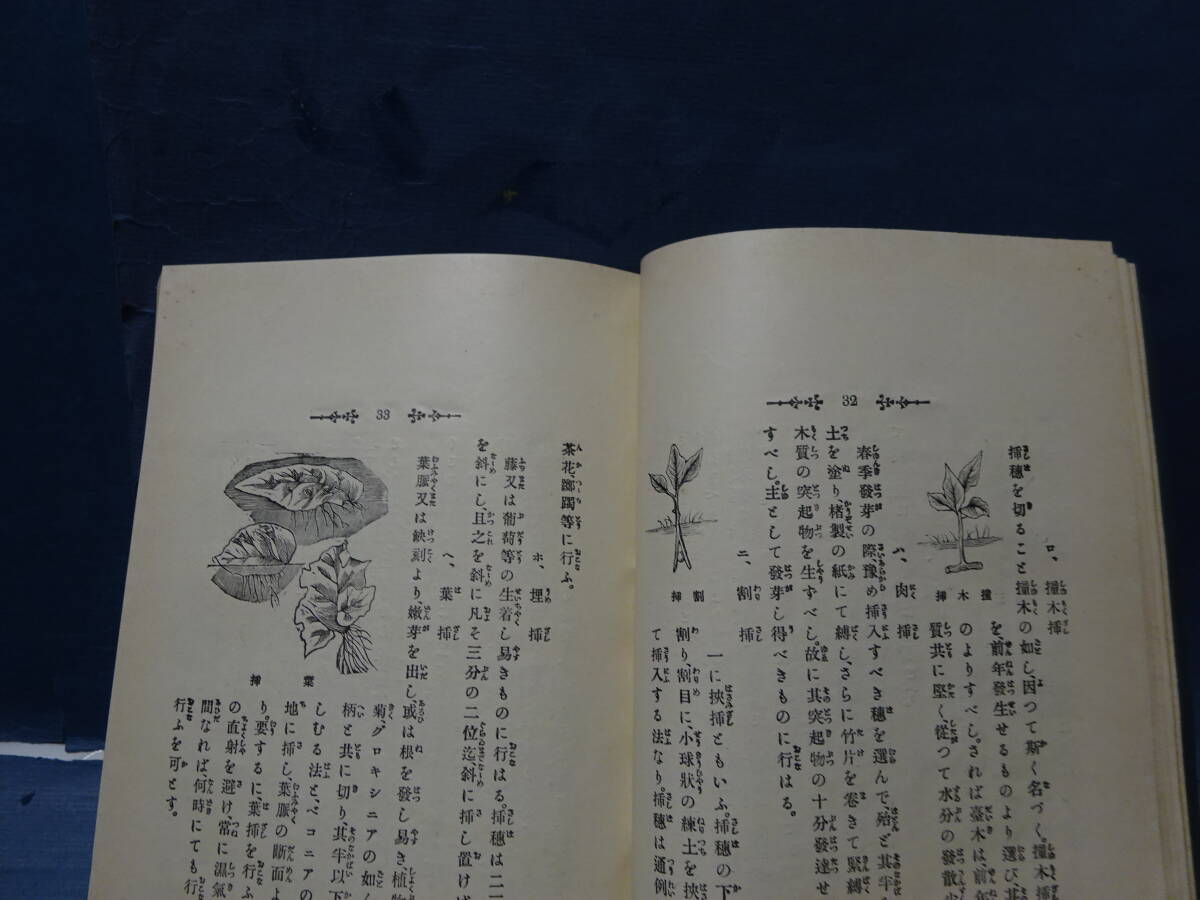 32
ロ、撞木挿
挿穗を切ること撞木の如し、因つて斯く名づく。撞木挿
を、前年發生せるものより選び、其
のよりすべし。されば臺木は、前年
質共に堅く、從つて水分の發散少
撞木挿
ハ、肉挿
春季發芽の際豫め挿入すべき穗を選んで、殆ど其半
土を塗り、楮製の紙にて縛し、さらに竹片を卷きて緊縛
木質の突起物を生ずべし。故に其突起物の十分發達せ
すべし。主として發芽し得べきものに行はる。
ニ、割挿
一に挾挿ともいふ。挿穗の下
割り、割目に、小球狀の練土を挾
て挿入する法なり。挿穗は通例
割挿
33
茶花、躑躅等に行ふ。
ホ、埋挿
藤又は葡萄等の生着し易きものに行はる。挿穗は二
を斜にし、且之を斜に凡そ三分の二位迄、斜に挿し置け
ヘ、葉挿
葉脈又は缺刻より、嫩芽を出し、或は根を發し易き植物
菊、グロキシニアの如
柄と共に切り、其半以下
しむる法と、ベコニアの
地に挿し、葉脈の斷面よ
り。要するに、葉挿を行ふ
の直射を避け、常に濕氣
間なれば、何時にても行
行ふを可とす。
葉挿